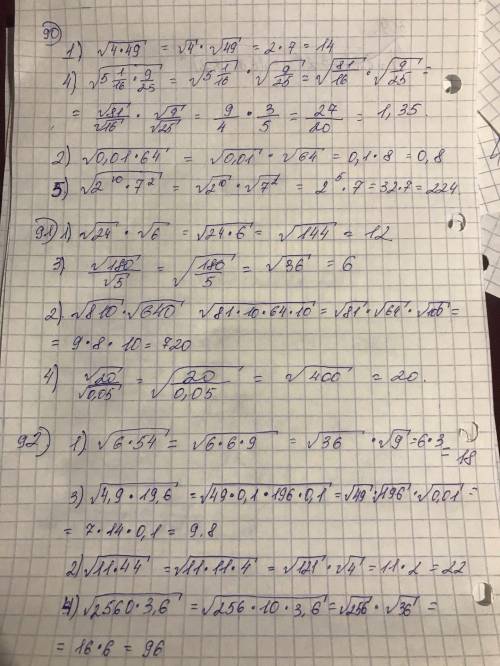 90
1) √4·49 = √4 · √49 = 2·7 = 14
4) √5 1/16 · 9/25 = √5 1/16 · √9/25 = √81/16 · √9/25 =
= √81/√16 · √9/√25 = 9/4 · 3/5 = 27/20 = 1,35.
2) √0,01·64 = √0,01 · √64 = 0,1·8 = 0,8
5) √2¹⁰·7² = √2¹⁰ · √7² = 2⁵·7 = 32·7 = 224
91) 1) √24 · √6 = √24·6 = √144 = 12
3) √180/√5 = √180/5 = √36 = 6
2) √810 · √640 √81·10·64·10 = √81 · √64 · √100 =
= 9·8·10 = 720
4) √20/√0,05 = √20/0,05 = √400 = 20.
92) 1) √6·54 = √6·6·9 = √36 · √9 = 6·3
= 18
3) √4,9·19,6 = √49·0,1·196·0,1 = √49 · √196 · √0,01 =
= 7·14·0,1 = 9.8
2) √11·44 = √11·11·4 = √121 · √4 = 11·2 = 22
4) √2560·3,6 = √256·10·3,6 = √256 · √36 =
= 16·6 = 96